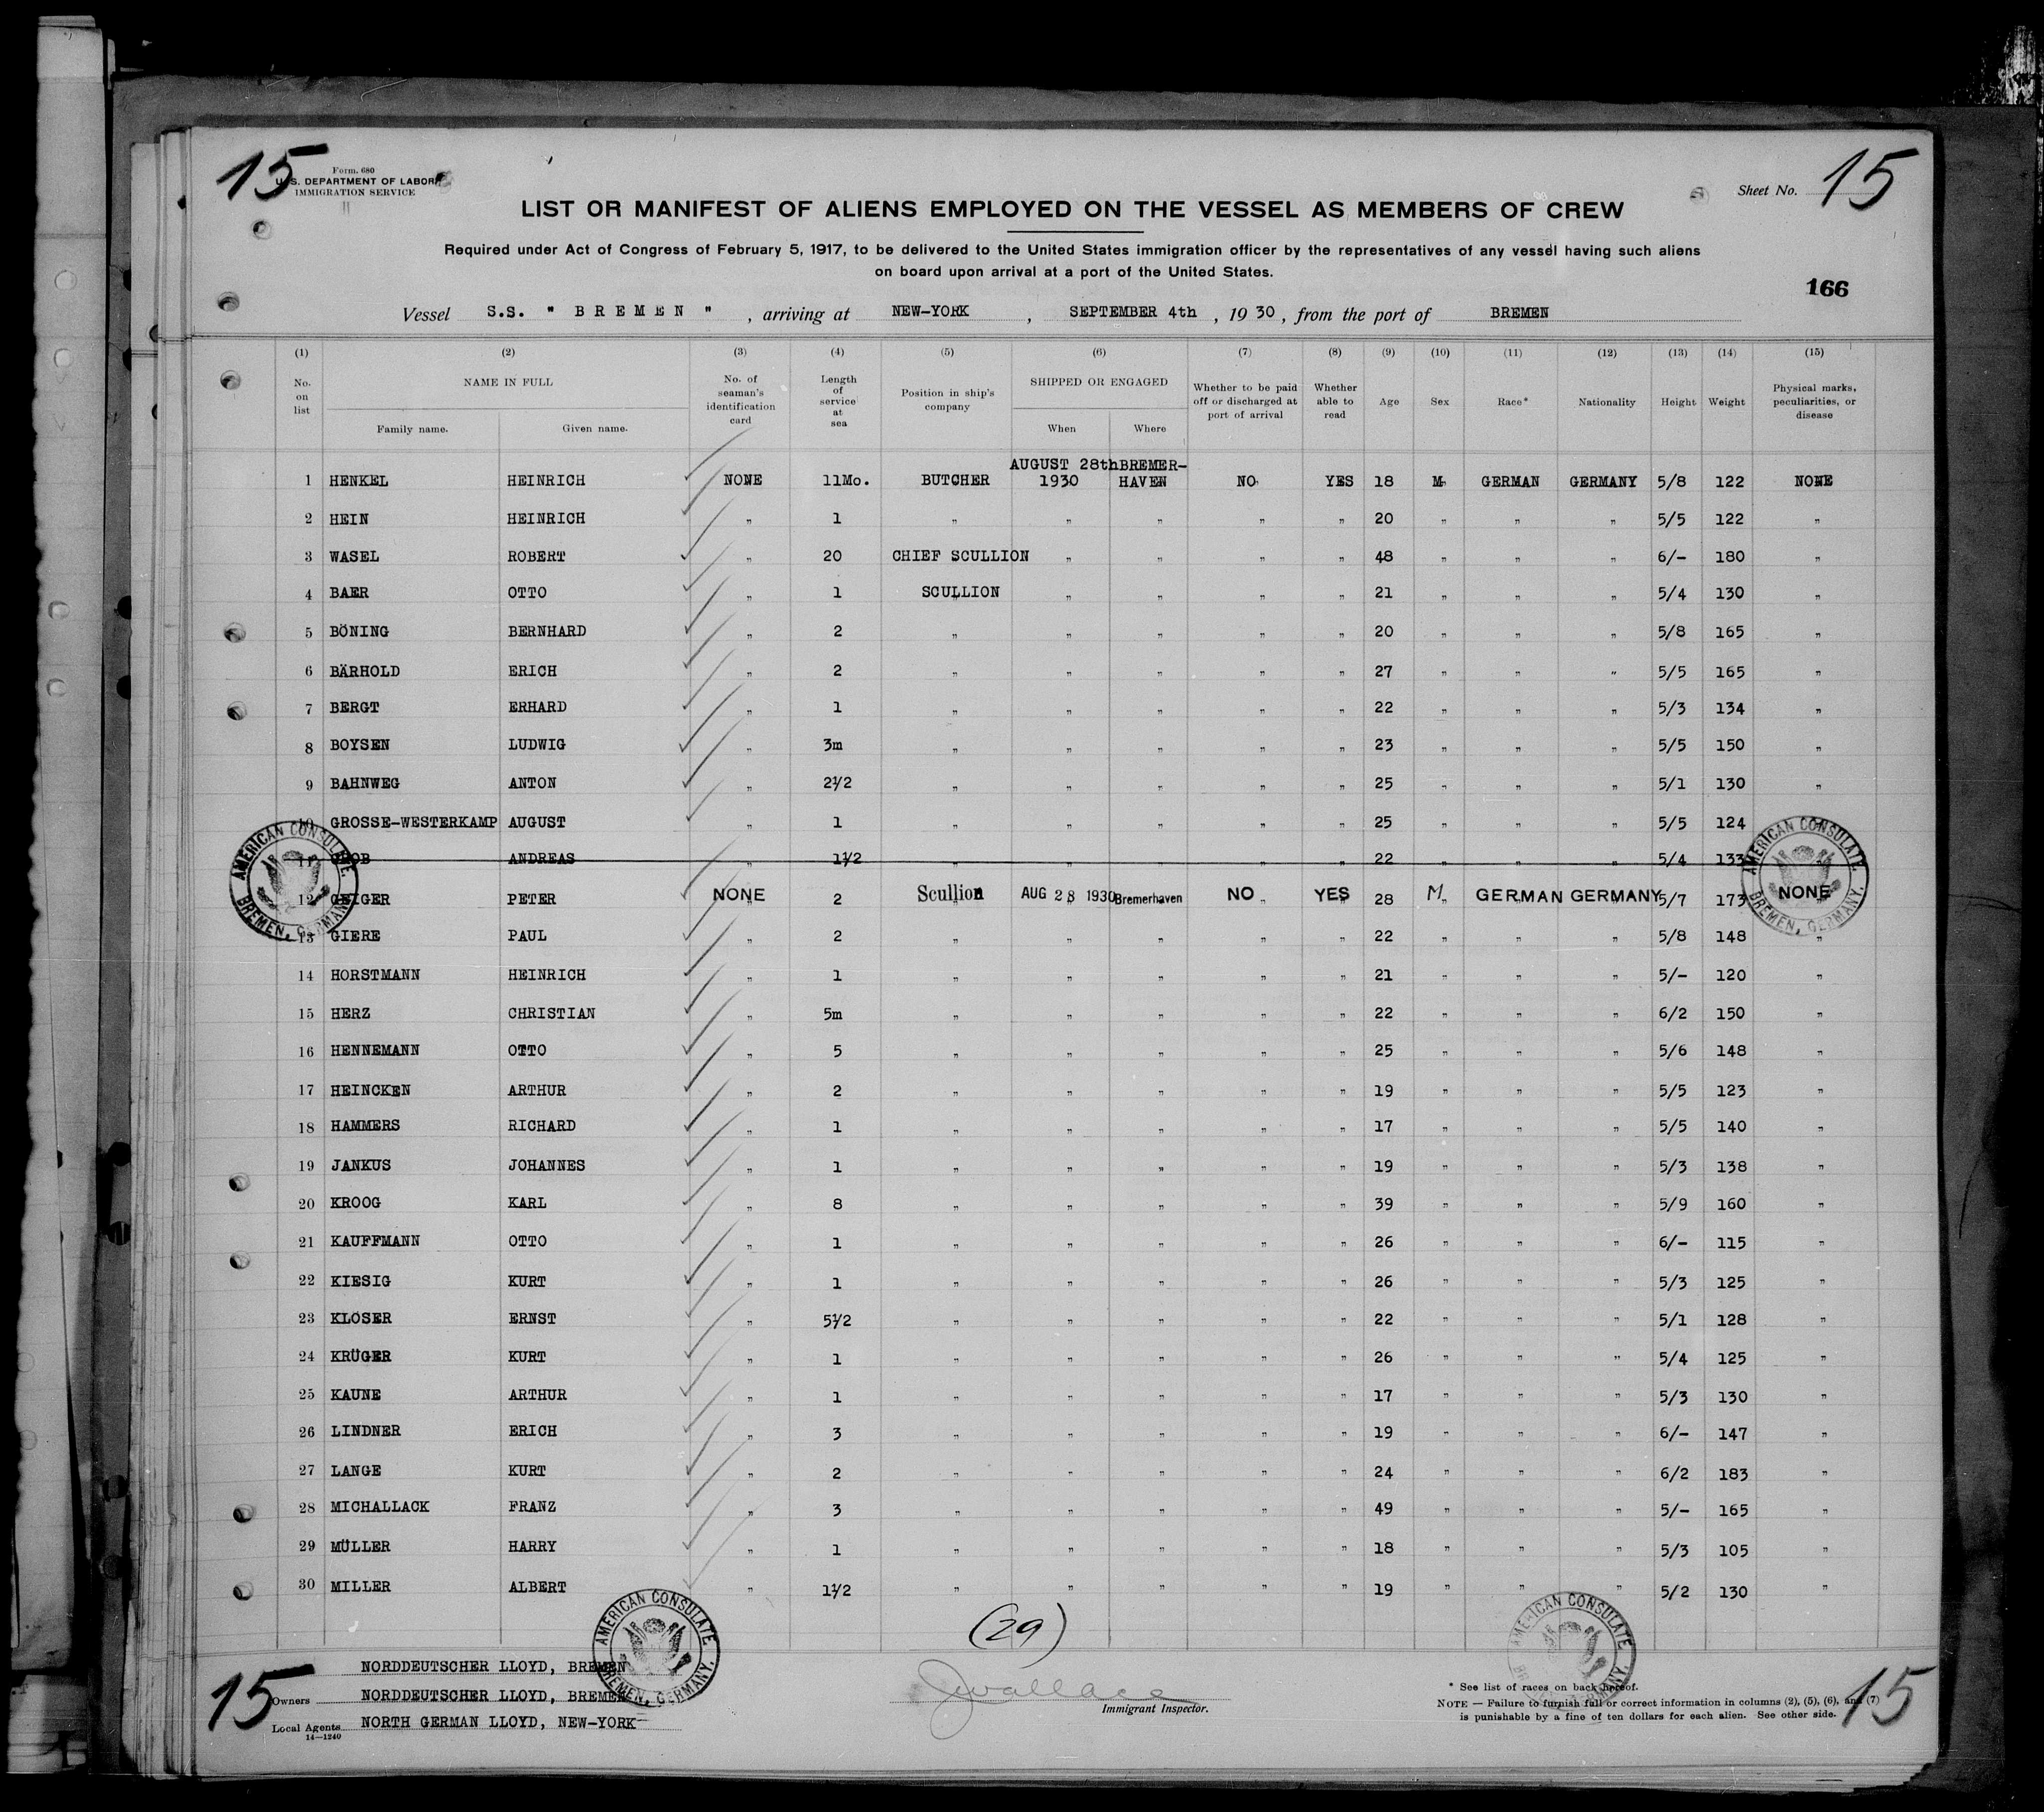 15 Form. 680 15
U.S. DEPARTMENT OF LABOR
IMMIGRATION SERVICE Sheet No.
LIST OR MANIFEST OF ALIENS EMPLOYED ON THE VESSEL AS MEMBERS OF CREW
Required under Act of Congress of February 5, 1917, to be delivered to the United States immigration officer by the representatives of any vessel having such aliens
on board upon arrival at a port of the United States.
166
Vessel S.S. " BREMEN " , arriving at NEW-YORK , SEPTEMBER 4th , 1930, from the port of BREMEN
(1) (2) (3) (4) (5) (6) (7) (8) (9) (10) (11) (12) (13) (14) (15)
No. on list NAME IN FULL Family name. Given name. No. of seaman's identification card Length of service at sea Position in ship's company SHIPPED OR ENGAGED When Where Whether to be paid off or discharged at port of arrival Whether able to read Age Sex Race* Nationality Height Weight Physical marks, peculiarities, or disease
1 HENKEL HEINRICH NONE 11Mo. BUTCHER AUGUST 28th 1930 BREMER-HAVEN NO YES 18 M GERMAN GERMANY 5/8 122 NONE
2 HEIN HEINRICH " 1 " " " " " 20 " " " 5/5 122 "
3 WASEL ROBERT " 20 CHIEF SCULLION " " " " 48 " " " 6/- 180 "
4 BAER OTTO " 1 SCULLION " " " " 21 " " " 5/4 130 "
5 BÖNING BERNHARD " 2 " " " " " 20 " " " 5/8 165 "
6 BÄRHOLD ERICH " 2 " " " " " 27 " " " 5/5 165 "
7 BERGT ERHARD " 1 " " " " " 22 " " " 5/3 134 "
8 BOYSEN LUDWIG " 3m " " " " " 23 " " " 5/5 150 "
9 BAHNWEG ANTON " 2½ " " " " " 25 " " " 5/1 130 "
10 GROSSE-WESTERKAMP AUGUST " 1 " " " " " 25 " " " 5/5 124
11 GROB ANDREAS 1½ " " " " " 22 " " " 5/4 133
12 GEIGER PETER NONE 2 Scullion AUG 28 1930 Bremerhaven NO YES 28 M GERMAN GERMANY 5/7 173 NONE
13 GIERE PAUL " 2 " " " " " 22 " " " 5/8 148 "
14 HORSTMANN HEINRICH " 1 " " " " " 21 " " " 5/- 120 "
15 HERZ CHRISTIAN " 5m " " " " " 22 " " " 6/2 150 "
16 HENNEMANN OTTO " 5 " " " " " 25 " " " 5/6 148 "
17 HEINCKEN ARTHUR " 2 " " " " " 19 " " " 5/5 123 "
18 HAMMERS RICHARD " 1 " " " " " 17 " " " 5/5 140 "
19 JANKUS JOHANNES " 1 " " " " " 19 " " " 5/3 138 "
20 KROOG KARL " 8 " " " " " 39 " " " 5/9 160 "
21 KAUFFMANN OTTO " 1 " " " " " 26 " " " 6/- 115 "
22 KIESIG KURT " 1 " " " " " 26 " " " 5/3 125 "
23 KLÖSER ERNST " 5½ " " " " " 22 " " " 5/1 128 "
24 KRÜGER KURT " 1 " " " " " 26 " " " 5/4 125 "
25 KAUNE ARTHUR " 1 " " " " " 17 " " " 5/3 130 "
26 LINDNER ERICH " 3 " " " " " 19 " " " 6/- 147 "
27 LANGE KURT " 2 " " " " " 24 " " " 6/2 183 "
28 MICHALLACK FRANZ " 3 " " " " " 49 " " " 5/- 165 "
29 MÜLLER HARRY " 1 " " " " " 18 " " " 5/3 105 "
30 MILLER ALBERT " 1½ " " " " " 19 " " " 5/2 130 "
AMERICAN CONSULATE. BREMEN, GERMANY.
AMERICAN CONSULATE. BREMEN, GERMANY.
(29)
AMERICAN CONSULATE BREMEN, GERMANY.
AMERICAN CONSULATE BREMEN, GERMANY.
NORDDEUTSCHER LLOYD, BREMEN
15 Owners NORDDEUTSCHER LLOYD, BREMEN
Local Agents NORTH GERMAN LLOYD, NEW-YORK
14—1240
JWallace
Immigrant Inspector.
* See list of races on back hereof.
NOTE — Failure to furnish full or correct information in columns (2), (5), (6), and (7)
is punishable by a fine of ten dollars for each alien. See other side.
15